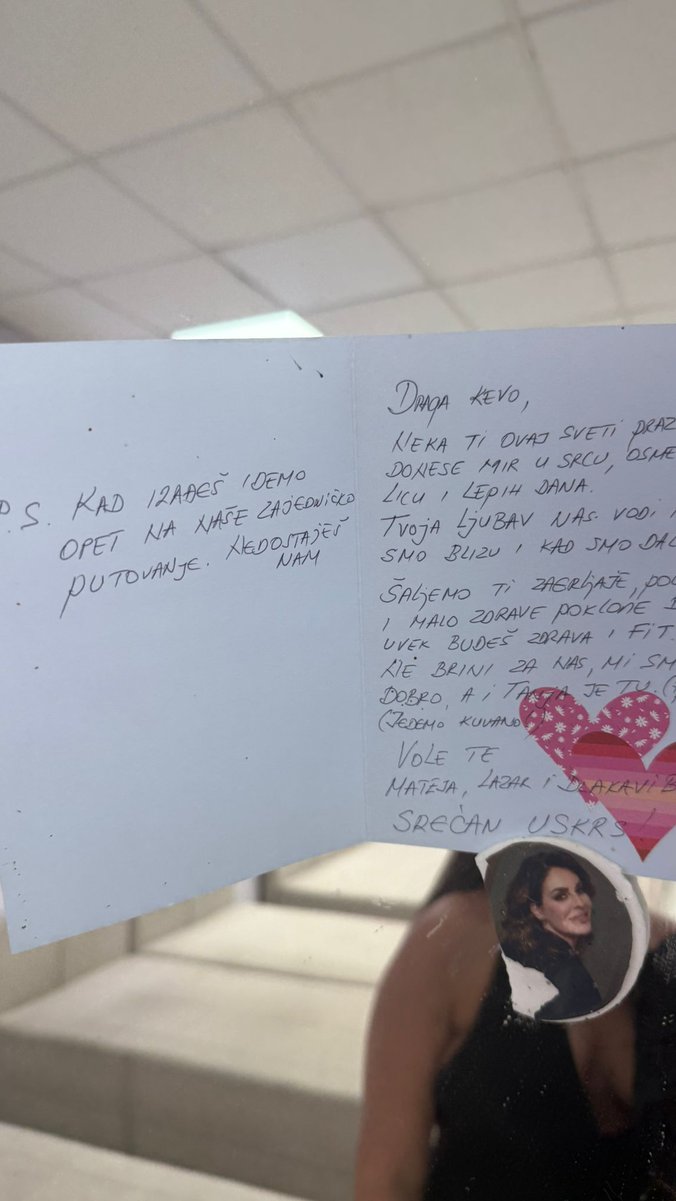 P.S. KAD IZAĐEŠ IDEMO
OPET NA NAŠE ZAJEDNIČKO
PUTOVANJE. NEDOSTAJEŠ
NAM
DRAGA KEVO,
NEKA TI OVAJ SVETI PRAZ
DONESE MIR U SRCU, OSME
LICU I LEPIH DANA.
TVOJA LJUBAV NAS VODI I
SMO BLIZU I KAD SMO DAL
ŠALJEMO TI ZAGRLJAJE, POL
I MALO ZDRAVE POKLONE D
UVEK BUDEŠ ZDRAVA I FIT.
NE BRINI ZA NAS, MI SM
DOBRO, A I TANJA JE TU.
(JEDEMO KUVANO!)
VOLE TE
MATEJA, LAZAR I DLAKAVI B
SREĆAN USKRS!